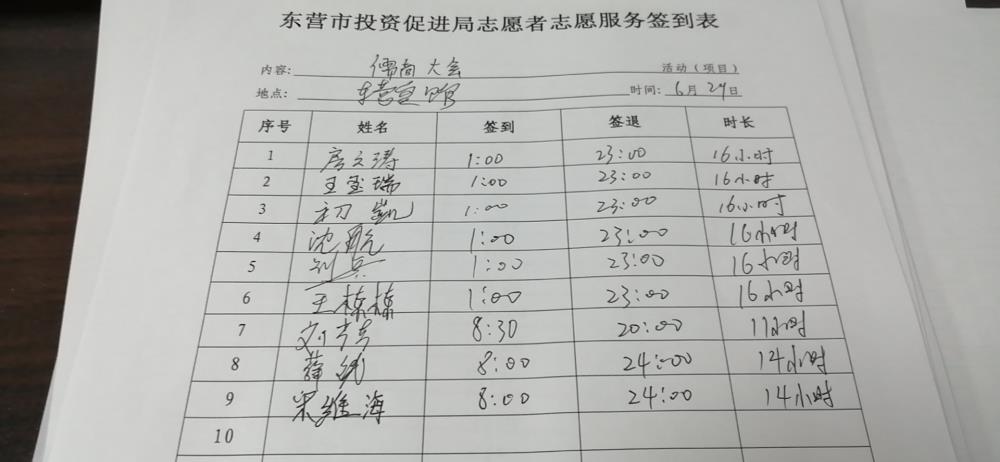 东营市投资促进局志愿者志愿服务签到表
内容: 儒商大会 活动（项目）
地点: 东营宾馆 时间: 6月29日
序号 姓名 签到 签退 时长
1 房文涛 1:00 23:00 16小时
2 王玺瑞 1:00 23:00 16小时
3 初凯 1:00 23:00 16小时
4 沈航 1:00 23:00 16小时
5 刘兵 1:00 23:00 16小时
6 王栋栋 1:00 23:00 16小时
7 8:30 20:00 11小时
8 薛 8:00 24:00 14小时
9 宋维海 8:00 24:00 14小时
10